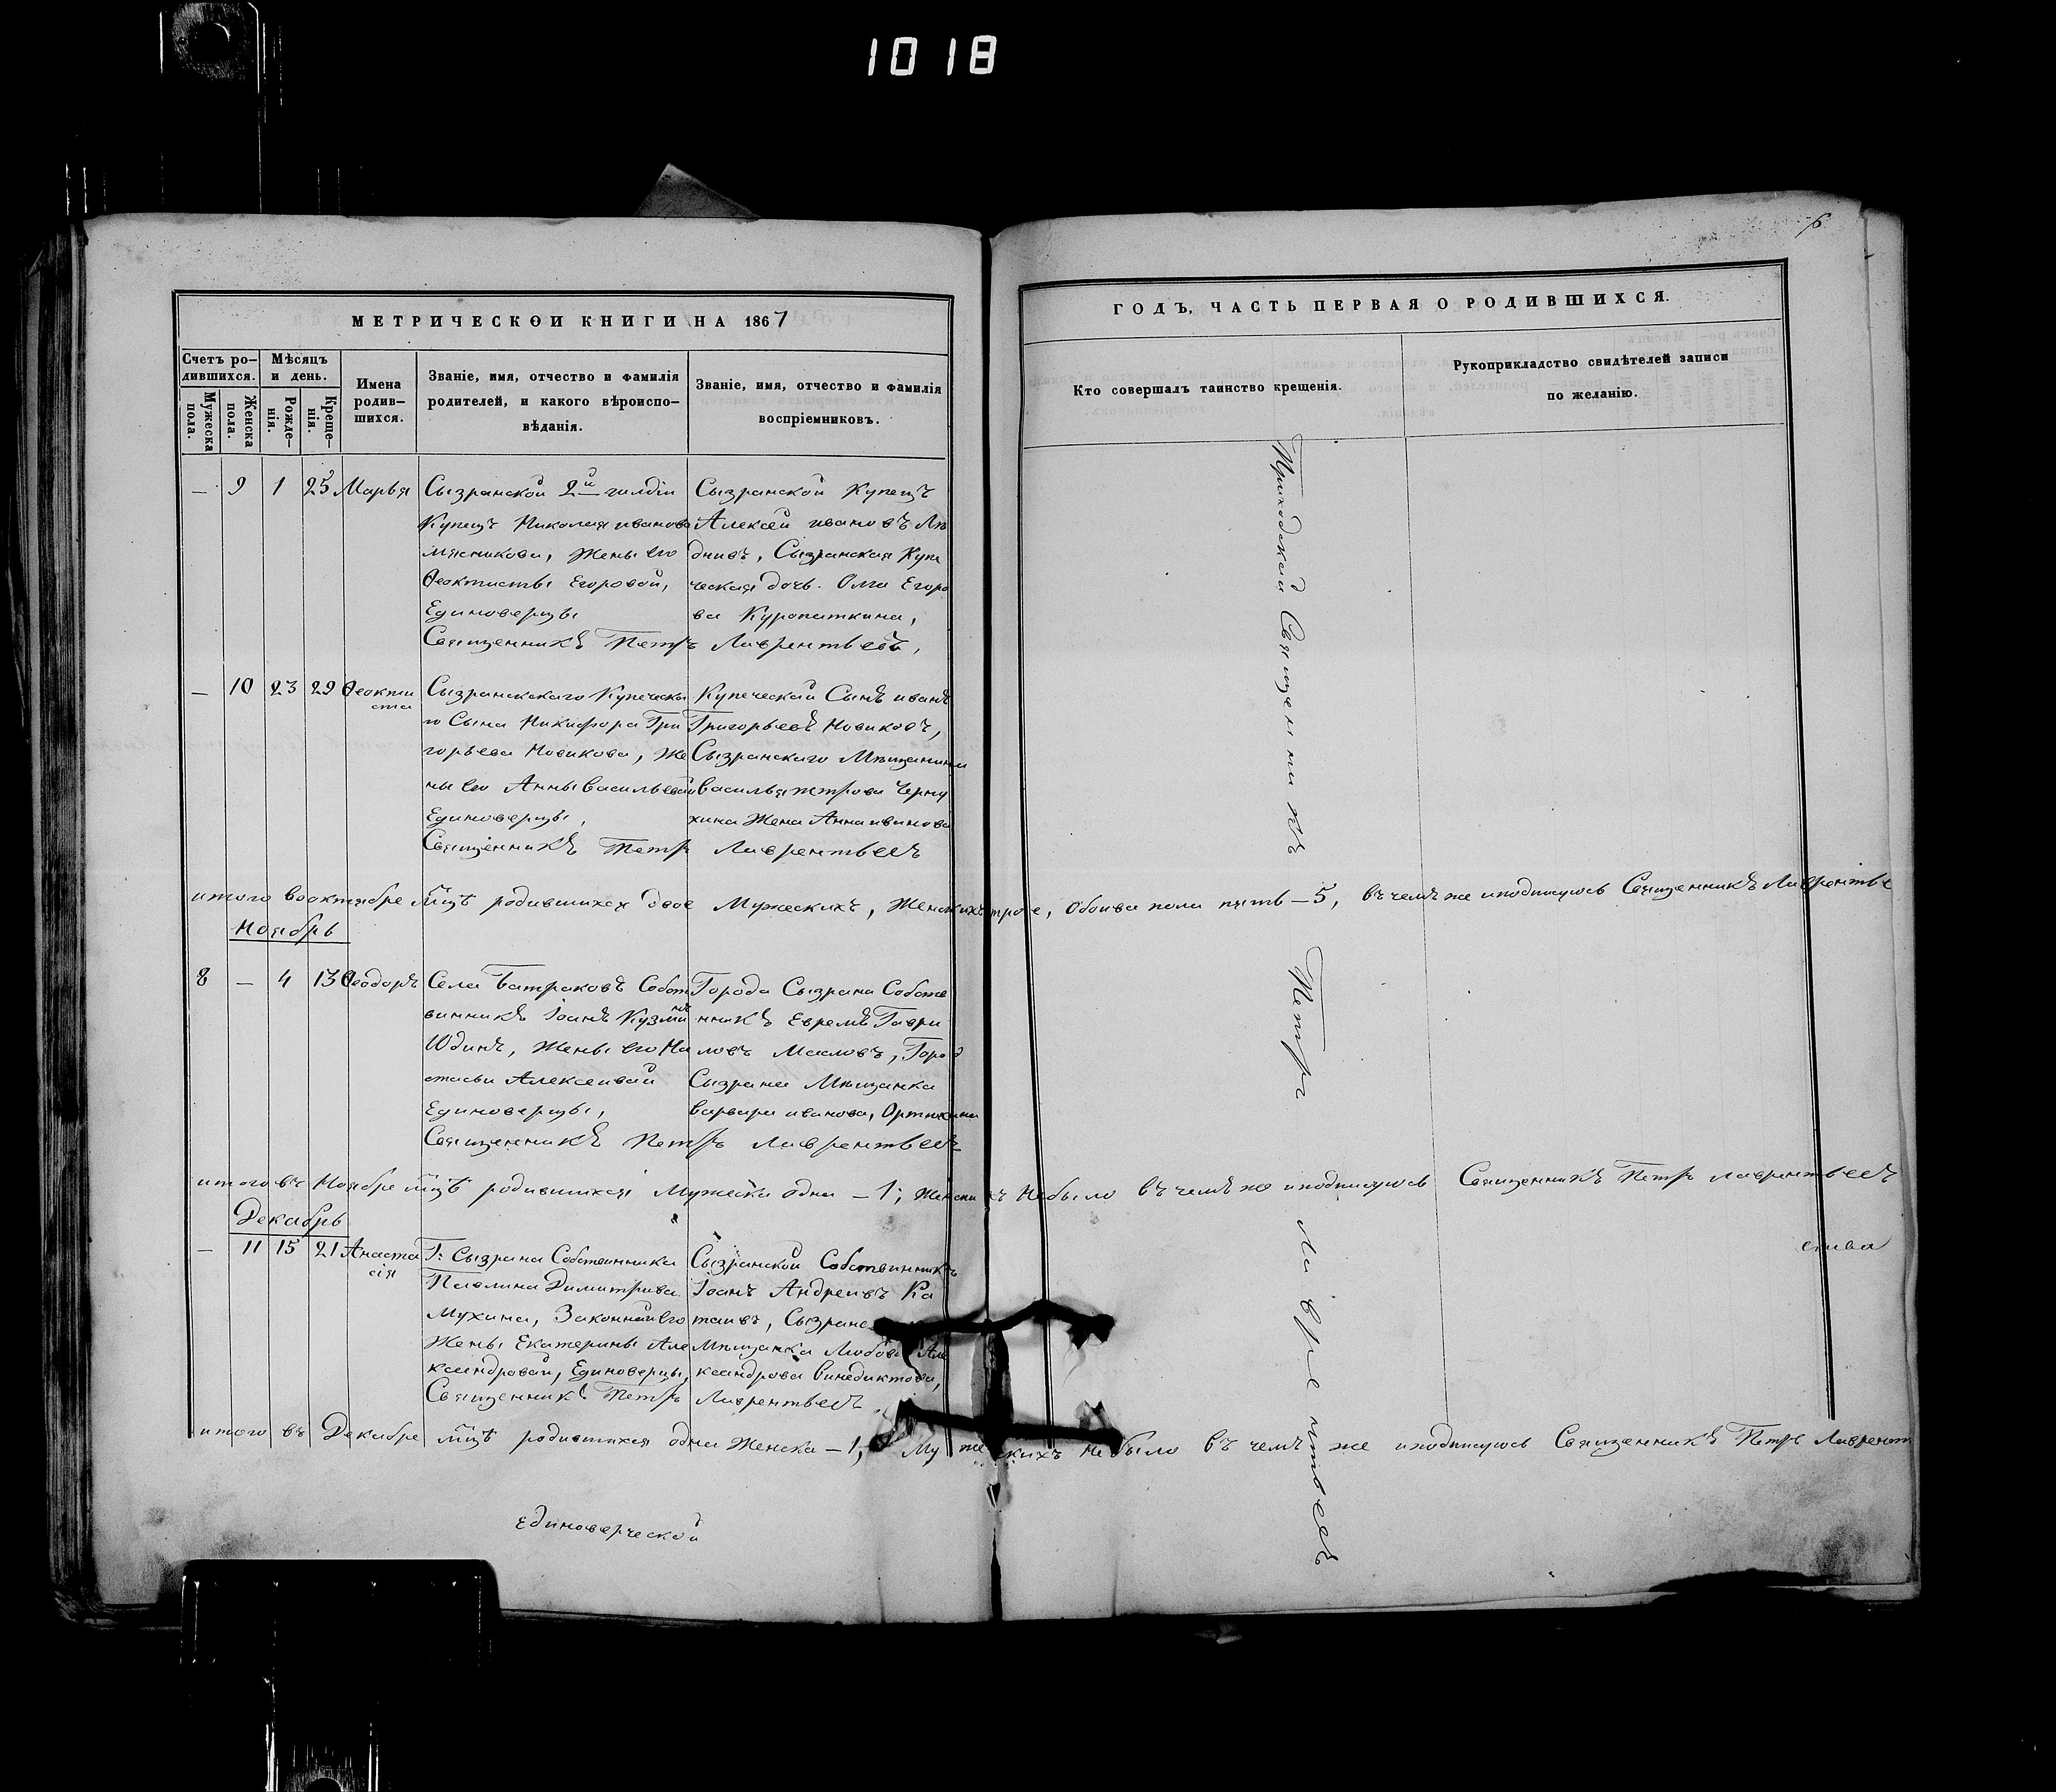 1018
6
МЕТРИЧЕСКОЙ КНИГИ НА 1867
ГОДЪ, ЧАСТЬ ПЕРВАЯ О РОДИВШИХСЯ.
Счетъ ро-
дившихся.
Мужеска
пола.
Женска
пола.
Мѣсяцъ
и день.
Рожде-
нія.
Креще-
нія.
Имена
родив-
шихся.
Званіе, имя, отчество и фамилія
родителей, и какого вѣроиспо-
вѣданія.
Званіе, имя, отчество и фамилія
воспріемниковъ.
Кто совершалъ таинство крещенія.
Рукоприкладство свидѣтелей записи
по желанію.
— 9 1 25 Марья
Сызранской 2й гилдіи
Купецъ Николая иванова
мясникова, Жены его
Ѳеоктисты Егоровой,
Единоверцы
Сызранской Купецъ
Алексей ивановъ
Сызранская Купе
ческая дочь Олга Егоро
ва Куропаткина,
Священникъ Петръ Лаврентьевъ,
— 10 23 29 Ѳеокти
ста
Сызранскаго Купеческа
го Сына Никифора Гри
горьева Новикова, Же
ны его Анны васильевой
Единоверцы,
Купеческай Сынъ иванъ
Григорьевъ Новиковъ,
Сызранскаго Мещанина
василья петрова Черну
хина Жена Анна иванова
Священникъ Петръ Лаврентьевъ
итого воктябре мцѣ родившихся двое Мужескихъ, Женскихъ трое, Обоива пола пять — 5, въ чемъ же иподписуюсь Священникъ Лаврентье
Ноябрь
8 — 4 13 Ѳеодоръ
Села Батраковъ Собст
винникъ Іоанъ Кузминъ
Юдинъ, Жены его На
стасьи Алексеивай
Единоверцы,
Города Сызрана Собстве
нникъ Евремъ Гаври
ловъ Масловъ, Город
Сызрана Мещанка
варвара иванова,
Священникъ Петръ Лаврентьевъ
итого въ Ноябре мцѣ родившихся Мужеска одна — 1; Женскихъ Небыло въ чемъ же иподписуюсь Священникъ Петръ лаврентьевъ
Декабрь
— 11 15 21 Анаста
сія
Г: Сызрана Собственника
Павлина Димитрива
Мухина, Законнай его
Жены Екатерины Але
ксандровай, Единоверцы,
Сызранской Собственникъ
Іоанъ Андреивъ Ка
таивъ,
Мещанка Любовь Але
ксандрова Винедиктова,
Священникъ Петръ Лаврентьевъ
итого въ Декабре мцѣ родившихся одна Женска — 1, Мужескихъ Небыло въ чемъ же иподписуюсь Священникъ Петръ Лаврент
единоверческой
Приходской Священникъ Петръ Лаврентьевъ